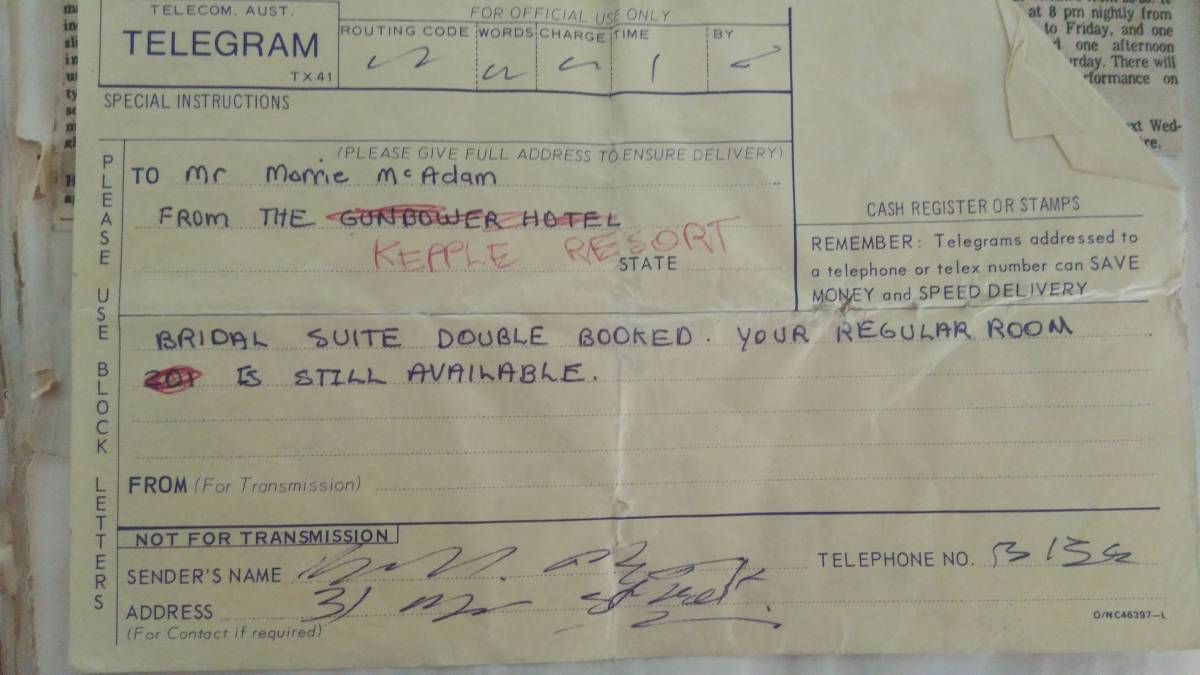 TELECOM. AUST.
TELEGRAM
TX 41
FOR OFFICIAL USE ONLY
ROUTING CODE WORDS CHARGE TIME BY
SPECIAL INSTRUCTIONS
PLEASE USE BLOCK LETTERS
(PLEASE GIVE FULL ADDRESS TO ENSURE DELIVERY)
TO Mr Morrie McAdam
FROM THE GUNBOWER HOTEL
KEPPLE RESORT
STATE
CASH REGISTER OR STAMPS
REMEMBER: Telegrams addressed to
a telephone or telex number can SAVE
MONEY and SPEED DELIVERY
BRIDAL SUITE DOUBLE BOOKED. YOUR REGULAR ROOM
201 IS STILL AVAILABLE.
FROM (For Transmission)
NOT FOR TRANSMISSION
SENDER'S NAME
TELEPHONE NO.
ADDRESS 31 Street.
(For Contact if required)
O/NC46397—L
at 8 pm nightly from
to Friday, and one
one afternoon
There will
on
Wed-